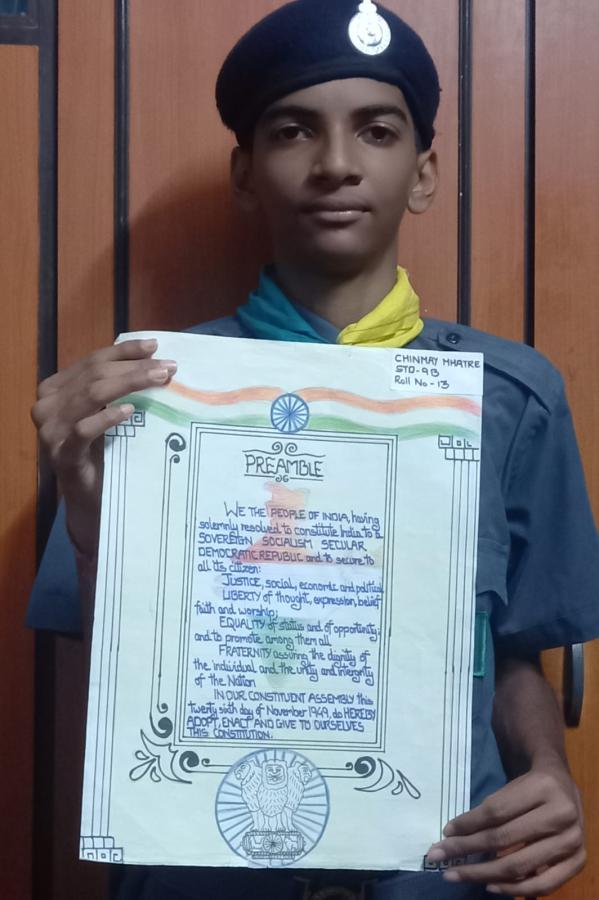 CHINMAY MHATRE
STD-9B
Roll No-13
PREAMBLE
WE THE PEOPLE OF INDIA, having
solemnly resolved to constitute India to a
SOVEREIGN SOCIALISM SECULAR
DEMOCRATIC REPUBLIC and to secure to
all its citizen:
JUSTICE, social, economic and political
LIBERTY of thought, expression, belief
faith and worship;
EQUALITY of status and of opportunity;
and to promote among them all
FRATERNITY assuring the dignity of
the individual and the unity and intergrity
of the Nation
IN OUR CONSTITUENT ASSEMBLY this
twenty sixth day of November 1949, do HEREBY
ADOPT, ENACT AND GIVE TO OURSELVES
THIS CONSTITUTION.